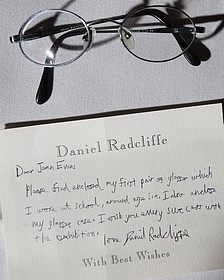 Daniel Radcliffe
Dear James Evans
Please find enclosed my first pair of glasses which
I wore at school, around age six. I also enclose
my glasses case. I wish you every success with
the exhibition.
love Daniel Radcliffe
With Best Wishes